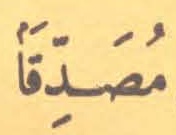 مُصَدِّقَاً